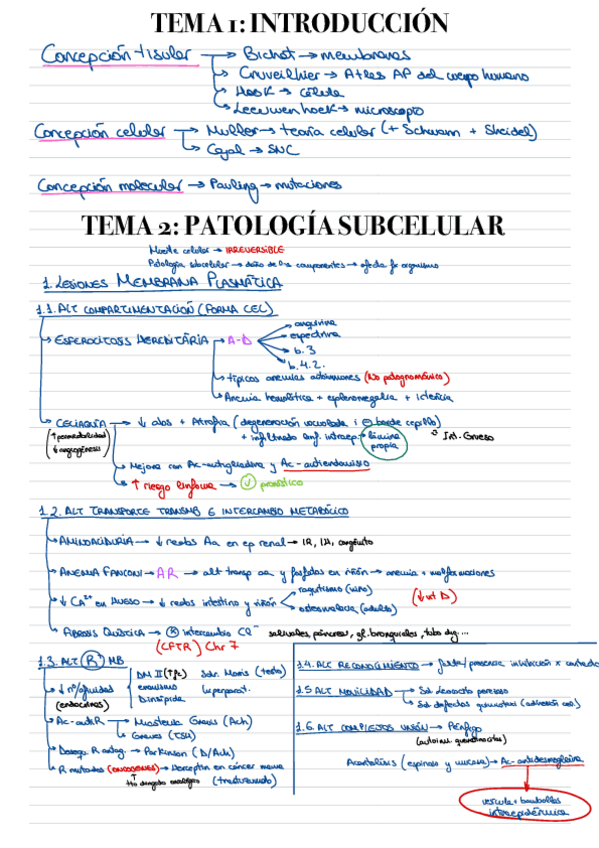 TEMA 1: INTRODUCCIÓN
Concepción tisular → Bichat → membranas
→ Cruveilhier → Atlas AP del cuerpo humano
→ Hook → célula
→ Leeuwenhoek → microscopio
Concepción celular → Muller → teoría celular (+ Schwann + Shleidel)
→ Cajal → SNC
Concepción molecular → Pauling → mutaciones
TEMA 2: PATOLOGÍA SUBCELULAR
Muerte celular → IRREVERSIBLE
Patología subcelular → daño de los componentes → afecta organismo
1. LESIONES MEMBRANA PLASMÁTICA
1.1. ALT COMPARTIMENTACIÓN (FORMA CEL)
→ ESFEROCITOSIS HEREDITARIA → A-D
anquirina
espectrina
b. 3
b. 4.2.
→ típicos anemias autoinmunes (No patognomónico)
→ Anemia hemolítica + esplenomegalia + ictericia
→ CELIAQUÍA → ↓ abs + Atrofia (degeneración vacuolada i ⊖ borde cepillo)
(↑ permeabilidad + infiltrado linf. intraep + lámina propia Int. Grueso
↓ angiogénesis)
→ Mejora con Ac-antigliadina y Ac-antiendomisio
→ ↑ riesgo linfoma → pronóstico
1.2. ALT TRANSPORTE TRANSMB E INTERCAMBIO METABÓLICO
→ AMINOACIDURIA → ↓ reabs Aa en ep renal → IR, congénito
→ ANEMIA FANCONI → AR → alt transp aa y fosfatos en riñón → anemia + malformaciones
→ ↓ Ca²⁺ en HUESO → ↓ reabs intestino y riñón
raquitismo (niño)
osteomalacia (adulto)
(↓ vit D)
→ FIBROSIS QUÍSTICA → intercambio Cl⁻ salivales, páncreas, gl. bronquiales, tubo dig...
(CFTR) Chr 7
1.3. ALT (R) MB
→ ↓ nº/afinidad
(endocrinos)
DM II Sdr. Morris (testo)
enanismo
D. insípida
→ Ac-antiR → Miastenia Gravis (Ach)
→ Graves (TSH)
→ R antag. → Parkinson (D/Ach)
→ R mutados (ONCOGENES) → Herceptin en cáncer mama
(trastuzumab)
1.4. ALT RECONOCIMIENTO → inhibición x contacto
1.5 ALT MOVILIDAD → Sd leucocito perezoso
→ Sd defectos (adhesión cel.)
1.6. ALT COMPLEJOS UNIÓN → Pénfigo
(autoinm. queratinocitos)
Acantolisis (espinoso y mucosa) → Ac-antidesmogleína
vesícula + ampollas
intraepidérmica